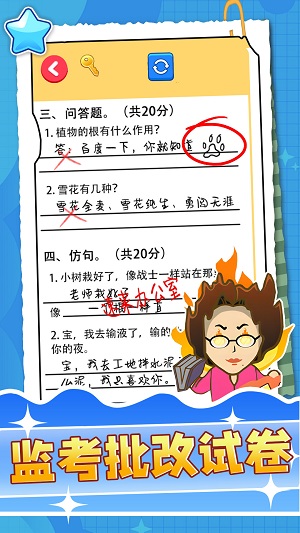 三、问答题。（共20分）
1. 植物的根有什么作用？
答：百度一下，你就知道
2. 雪花有几种？
雪花全麦、雪花纯生、勇闯天涯
四、仿句。（共20分）
1. 小树栽好了，像战士一样站在那
老师栽
请来办公室
像 一样
2. 宝，我去输液了，输的
你的夜。
宝，我去工地拌水泥
么泥，我只喜欢你。
监考批改试卷